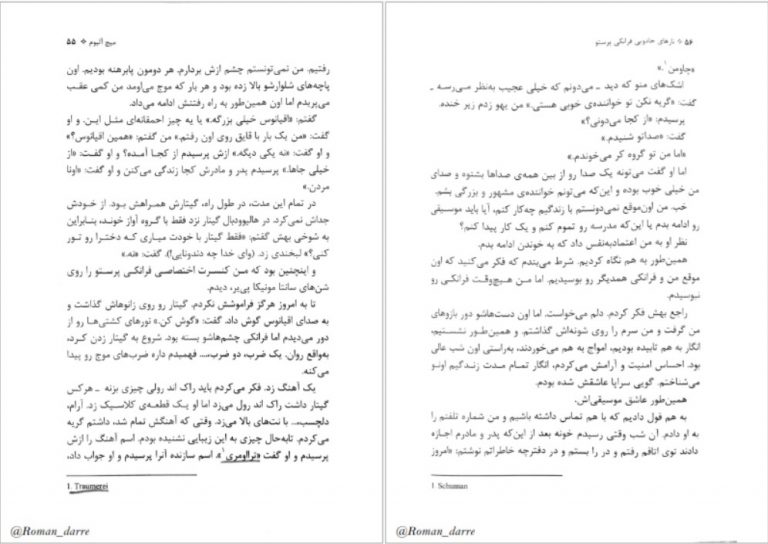 میچ آلبوم ❖ ۵۵
رفتیم. من نمی‌تونستم چشم ازش بردارم. هر دومون پابرهنه بودیم. اون
پاچه‌های شلوارشو بالا زده بود و هر بار که موج می‌اومد من کمی عقب
می‌پریدم اما اون همین‌طور به راه رفتنش ادامه می‌داد.
گفتم: «اقیانوس خیلی بزرگه.» یا یه چیز احمقانه‌ای مثل این. و او
گفت: «من یک بار با قایق روی اون رفتم.» من گفتم: «همین اقیانوس؟»
و او گفت: «نه یکی دیگه.» ازش پرسیدم از کجا آمده؟ و او گفت: «از
خیلی جاها.» پرسیدم پدر و مادرش کجا زندگی می‌کنن و او گفت: «اونا
مردن.»
در تمام این مدت، در طول راه، گیتارش همراهش بود. از خودش
جداش نمی‌کرد. در هالیوودبال گیتار نزد فقط با گروه آواز خوند، بنابراین
به شوخی بهش گفتم: «فقط گیتار با خودت میاری که دخترا رو تور
کنی؟» لبخندی زد. (وای خدا چه دندونایی!) گفت: «نه.»
و اینچنین بود که من کنسرت اختصاصی فرانکی پرستو را روی
شن‌های سانتا مونیکا پی‌یر، دیدم.
تا به امروز هرگز فراموشش نکردم. گیتار رو روی زانوهاش گذاشت و
به صدای اقیانوس گوش داد. گفت: «گوش کن.» نورهای کشتی‌ها رو از
دور می‌دیدم اما فرانکی چشم‌هاشو بسته بود. شروع به گیتار زدن کرد،
به‌واقع روان. یک ضرب، دو ضرب،... فهمیدم داره ضرب‌های موج رو پیدا
می‌کنه.
یک آهنگ زد. فکر می‌کردم باید راک اند رولی چیزی بزنه ـ هرکس
گیتار داشت راک اند رول می‌زد اما او یک قطعه‌ی کلاسیک زد. آرام،
دلچسب،... با نت‌های بالا می‌زد. وقتی که آهنگش تمام شد، داشتم گریه
می‌کردم. تابه‌حال چیزی به این زیبایی نشنیده بودم. اسم آهنگ را ازش
پرسیدم و او گفت «تراا‌ومری۱». اسم سازنده آنرا پرسیدم و او جواب داد،
1. Traumerei
@Roman_darre
۵۶ ❖ تارهای جادویی فرانکی پرستو
«چاومن۱.»
اشک‌های منو که دید ـ می‌دونم که خیلی عجیب به‌نظر می‌رسه ـ
گفت: «گریه نکن تو خواننده‌ی خوبی هستی.» من یهو زدم زیر خنده.
پرسیدم: «از کجا می‌دونی؟»
گفت: «صداتو شنیدم.»
«اما من تو گروه کر می‌خوندم.»
اما او گفت می‌تونه یک صدا رو از بین همه‌ی صداها بشنوه و صدای
من خیلی خوب بوده و این‌که می‌تونم خواننده‌ی مشهور و بزرگی بشم.
خب، من اون‌موقع نمی‌دونستم با زندگیم چه‌کار کنم، آیا باید موسیقی
رو ادامه بدم یا این‌که مدرسه رو تموم کنم و یک کار پیدا کنم؟
نظر او به من اعتمادبه‌نفس داد که به خوندن ادامه بدم.
همین‌طور به هم نگاه کردیم. شرط می‌بندم که فکر می‌کنید که اون
موقع من و فرانکی همدیگر رو بوسیدیم. اما من هیچ‌وقت فرانکی رو
نبوسیدم.
راجع بهش فکر کردم. دلم می‌خواست. اما اون دست‌هاشو دور بازوهای
من گرفت و من سرم را روی شونه‌اش گذاشتم. و همین‌طور نشستیم،
انگار به هم تابیده بودیم، امواج به هم می‌خوردند، به‌راستی اون شب عالی
بود. احساس امنیت و آرامش می‌کردم، انگار تمام مدت زندگیم اونو
می‌شناختم. گویی سراپا عاشقش شده بودم.
همین‌طور عاشق موسیقی‌اش.
به هم قول دادیم که با هم تماس داشته باشیم و من شماره تلفنم را
به او دادم. آن شب وقتی رسیدم خونه بعد از این‌که پدر و مادرم اجازه
دادند توی اتاقم رفتم و در را بستم و در دفترچه خاطراتم نوشتم: «امروز
1. Schuman
@Roman_darre